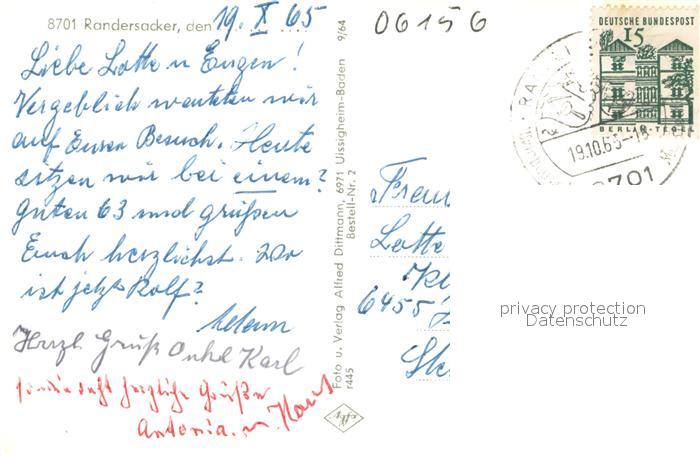 8701 Randersacker, den 19. X 65
Liebe Lotte u Eugen!
Vergeblich warteten wir
auf Euren Besuch. Heute
sitzen wir bei einem
guten 63 und grüßen
Euch herzlichst. Wo
ist jetzt Rolf?
Herzl. Gruß Onkel Karl
herzliche Grüße
Antonia. u.
Foto u. Verlag Alfred Dittmann, 6971 Uissigheim-Baden 9/64
Bestell-Nr. 2
r445
06156
DEUTSCHE BUNDESPOST
15
BERLIN-TEGEL
19.10.65-18
8701
Frau
Lotte
6455
privacy protection
Datenschutz